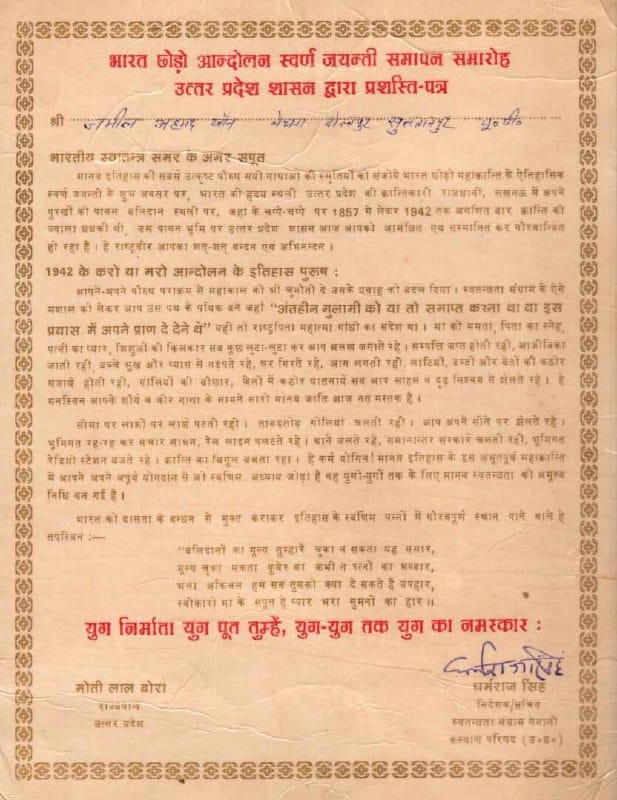 भारत छोड़ो आन्दोलन स्वर्ण जयन्ती समापन समारोह
उत्तर प्रदेश शासन द्वारा प्रशस्ति-पत्र
श्री जमील अहमद सुलतानपुर यू०पी०
भारतीय स्वातन्त्र समर के अमर सपूत
मानव इतिहास की सबसे उत्कृष्ट पौरुष सयी गाथाओं की स्मृतियों को संजोये भारत छोड़ो महाक्रान्ति के ऐतिहासिक
स्वर्ण जयन्ती के शुभ अवसर पर, भारत की हृदय स्थली उत्तर प्रदेश की क्रान्तिकारी राजधानी, लखनऊ में अपने
पुरखों की पावन बलिदान स्थली पर, जहां के चप्पे-चप्पे पर 1857 से लेकर 1942 तक अगणित बार क्रान्ति की
ज्वाला धधकी थी, उस पावन भूमि पर उत्तर प्रदेश शासन आज आपको आमंत्रित एवं सम्मानित कर गौरवान्वित
हो रहा है । हे राष्ट्रवीर आपका शत्-शत् वन्दन एवं अभिनन्दन ।
1942 के करो या मरो आन्दोलन के इतिहास पुरूष :
आपने-अपने पौरुष पराक्रम से महाकाल को भी चुनौती दे उसके प्रवाह को बदल दिया । स्वतन्त्रता संग्राम के ऐसे
मशाल को लेकर आप उस पथ के पथिक बने जहां "अंतहीन गुलामी को या तो समाप्त करना था या इस
प्रयास में अपने प्राण दे देने थे" यही तो राष्ट्रपिता महात्मा गांधी का संदेश था । मां की ममता, पिता का स्नेह,
पत्नी का प्यार, शिशुओं की किलकार सब कुछ लुटा-लुटा कर आप अलख जगाते रहे । सम्पत्ति जप्त होती रही, आजीविका
जाती रही, बच्चे भूख और प्यास से तड़पते रहे, घर गिरते रहे, आग लगती रही, लाठियों, डण्डों और बेंतों की कठोर
सजायें होती रही, गोलियों की बौछार, जेलों में कठोर यातनायें सब आप साहस व दृढ़ निश्चय से झेलते रहे । हे
मनस्विन आपके शौर्य व वीर गाथा के सामने सारी मानव जाति आज नत मस्तक है ।
सीमा पर लाशों पर लाशें पटती रहीं । ताबड़तोड़ गोलियां चलती रहीं । आप अपने सीने पर झेलते रहे ।
भूमिगत रह-रह कर संचार साधन, रेल लाइन पलटते रहे । थाने जलते रहे, समानान्तर सरकारें चलती रहीं, भूमिगत
रेडियो स्टेशन बजते रहे । क्रान्ति का बिगुल बजता रहा । हे कर्म योगिन! मानव इतिहास के इस अभूतपूर्व महाक्रान्ति
में आपने अपने अपूर्व योगदान से जो स्वर्णिम अध्याय जोड़ा है वह युगों-युगों तक के लिए मानव स्वतन्त्रता की अमूल्य
निधि बन गई है ।
भारत को दासता के बन्धन से मुक्त कराकर इतिहास के स्वर्णिम पन्नों में गौरवपूर्ण स्थान पाने वाले हे
तपस्विन :—
"बलिदानों का मूल्य तुम्हारे चुका न सकता यह संसार,
मूल्य चुका सकता कुबेर का कभी न रत्नों का भण्डार,
भला अकिंचन हम सब तुमको क्या दे सकते हैं उपहार,
स्वीकारो मां के सपूत हे प्यार भरा सुमनों का हार ।।
युग निर्माता युग पूत तुम्हें, युग-युग तक युग का नमस्कार :
मोती लाल बोरा
राज्यपाल
उत्तर प्रदेश
धर्मराज सिंह
धर्मराज सिंह
निदेशक/सचिव
स्वतन्त्रता संग्राम सेनानी
कल्याण परिषद (उ०प्र०)